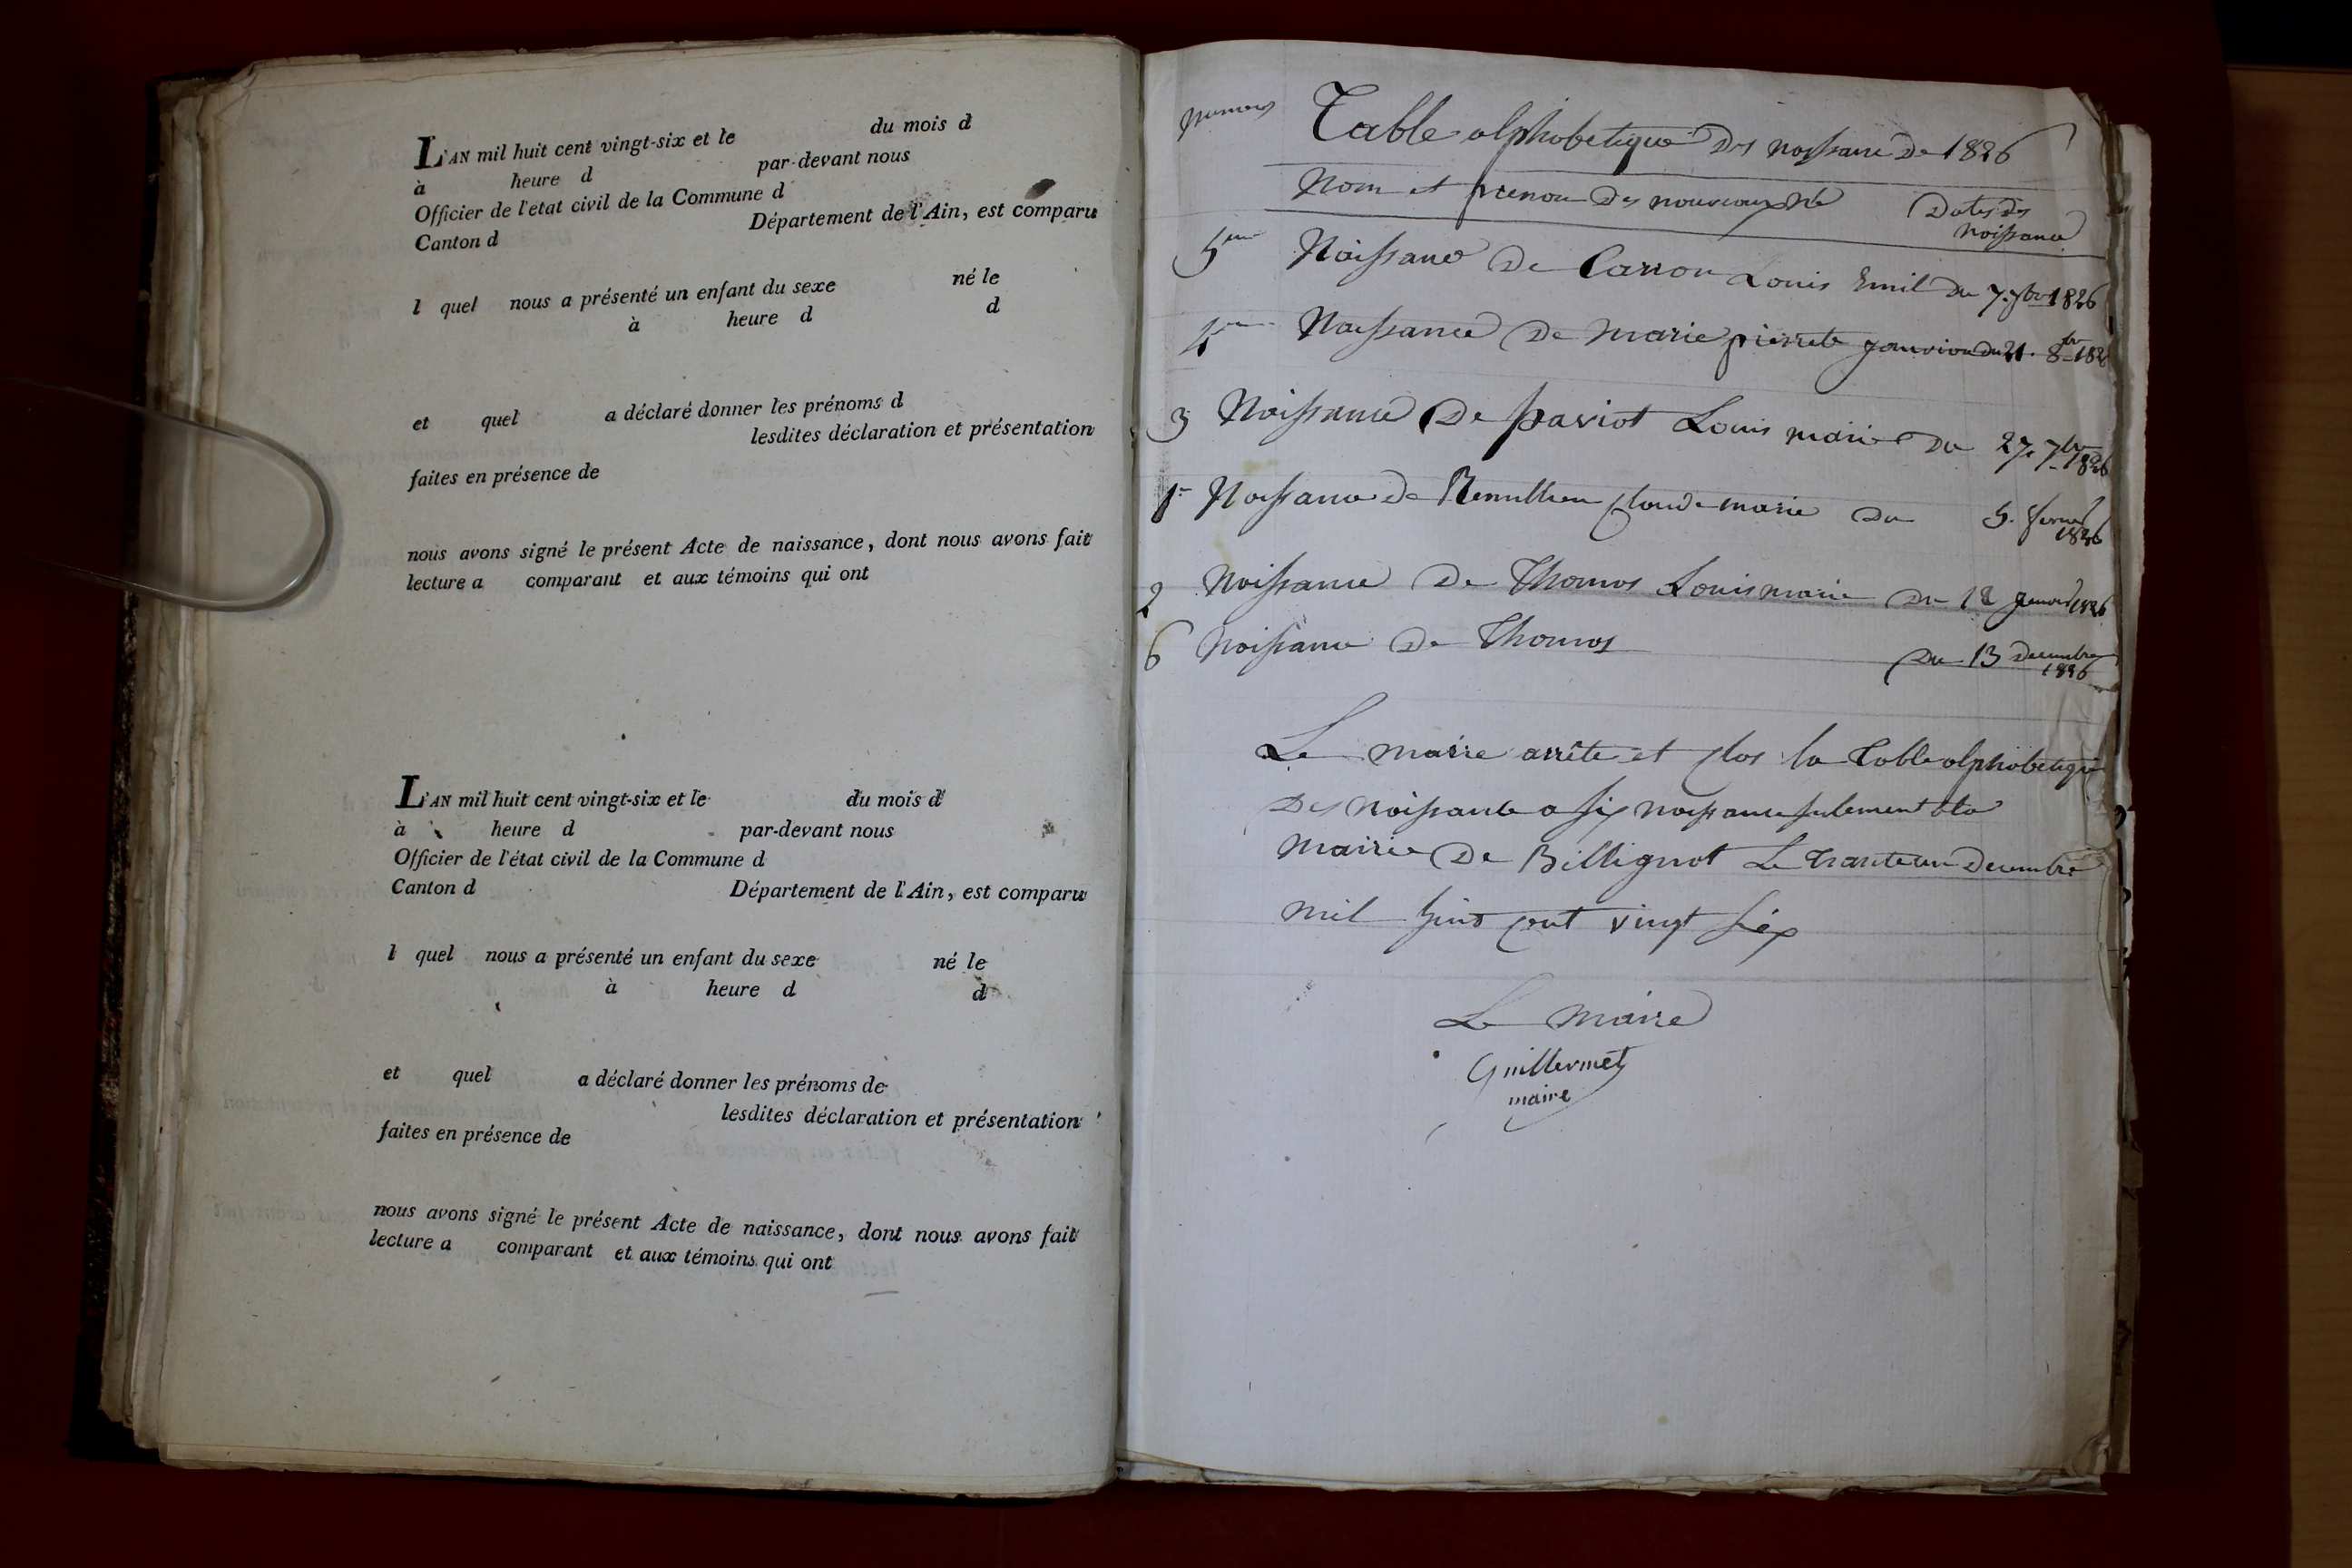 L'AN mil huit cent vingt-six et le du mois d
à heure d par-devant nous
Officier de l'etat civil de la Commune d
Canton d Département de l'Ain, est comparu
l quel nous a présenté un enfant du sexe né le
à heure d d
et quel a déclaré donner les prénoms d
lesdites déclaration et présentation
faites en présence de
nous avons signé le présent Acte de naissance, dont nous avons fait
lecture a comparant et aux témoins qui ont
L'AN mil huit cent vingt-six et le du mois d
à heure d par-devant nous
Officier de l'état civil de la Commune d
Canton d Département de l'Ain, est comparu
l quel nous a présenté un enfant du sexe né le
à heure d d
et quel a déclaré donner les prénoms de
lesdites déclaration et présentation
faites en présence de
nous avons signé le présent Acte de naissance, dont nous avons fait
lecture a comparant et aux témoins qui ont
Table alphabetique des naissance de 1826
Nom et prenom des nouveaux né Dates des
naissance
5eme Naissance de Carron Louis Emil du 7. 1826
4 Naissance de Marie pierrette du 21. 8bre
3 Naissance de paviot Louis marie du 27. 7bre
1826
1er Naissance de Claude marie du 5.
1826
2 Naissance de Thomas Louis marie du 1826
6 Naissance de Thomas du 13 Decembre
1826
Le maire arrête et clos la table alphabetique
des naissance a six naissance sulement a la
Mairie de Billignat Le trante un Decembre
mil huit cent vingt six
Le Maire
Guillermet
maire